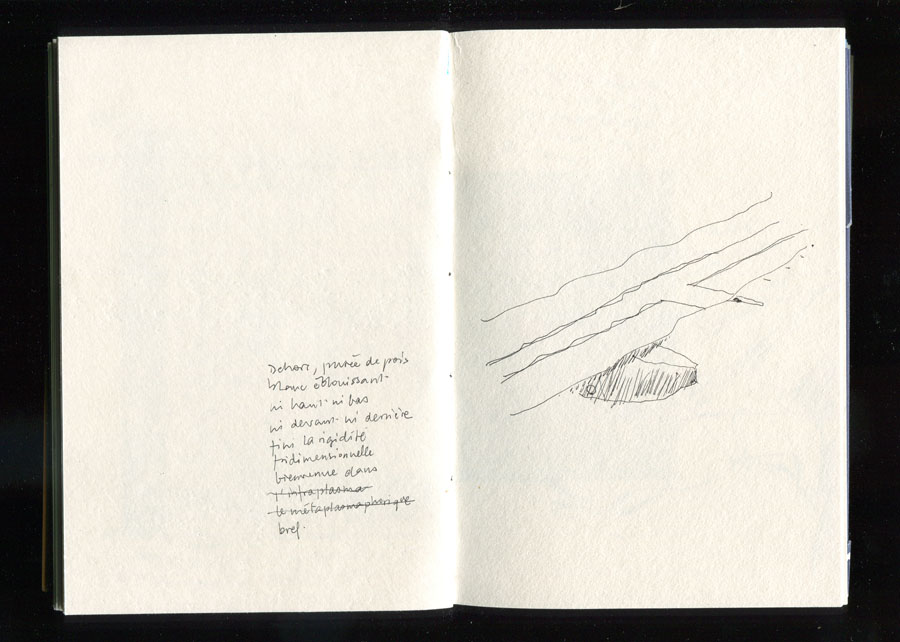 Dehors, purée de pois
blanc éblouissant
ni haut ni bas
ni devant ni derrière
fini la rigidité
tridimensionnelle
bienvenue dans
l'infraplasma
le métaplasmaphérique
bref.